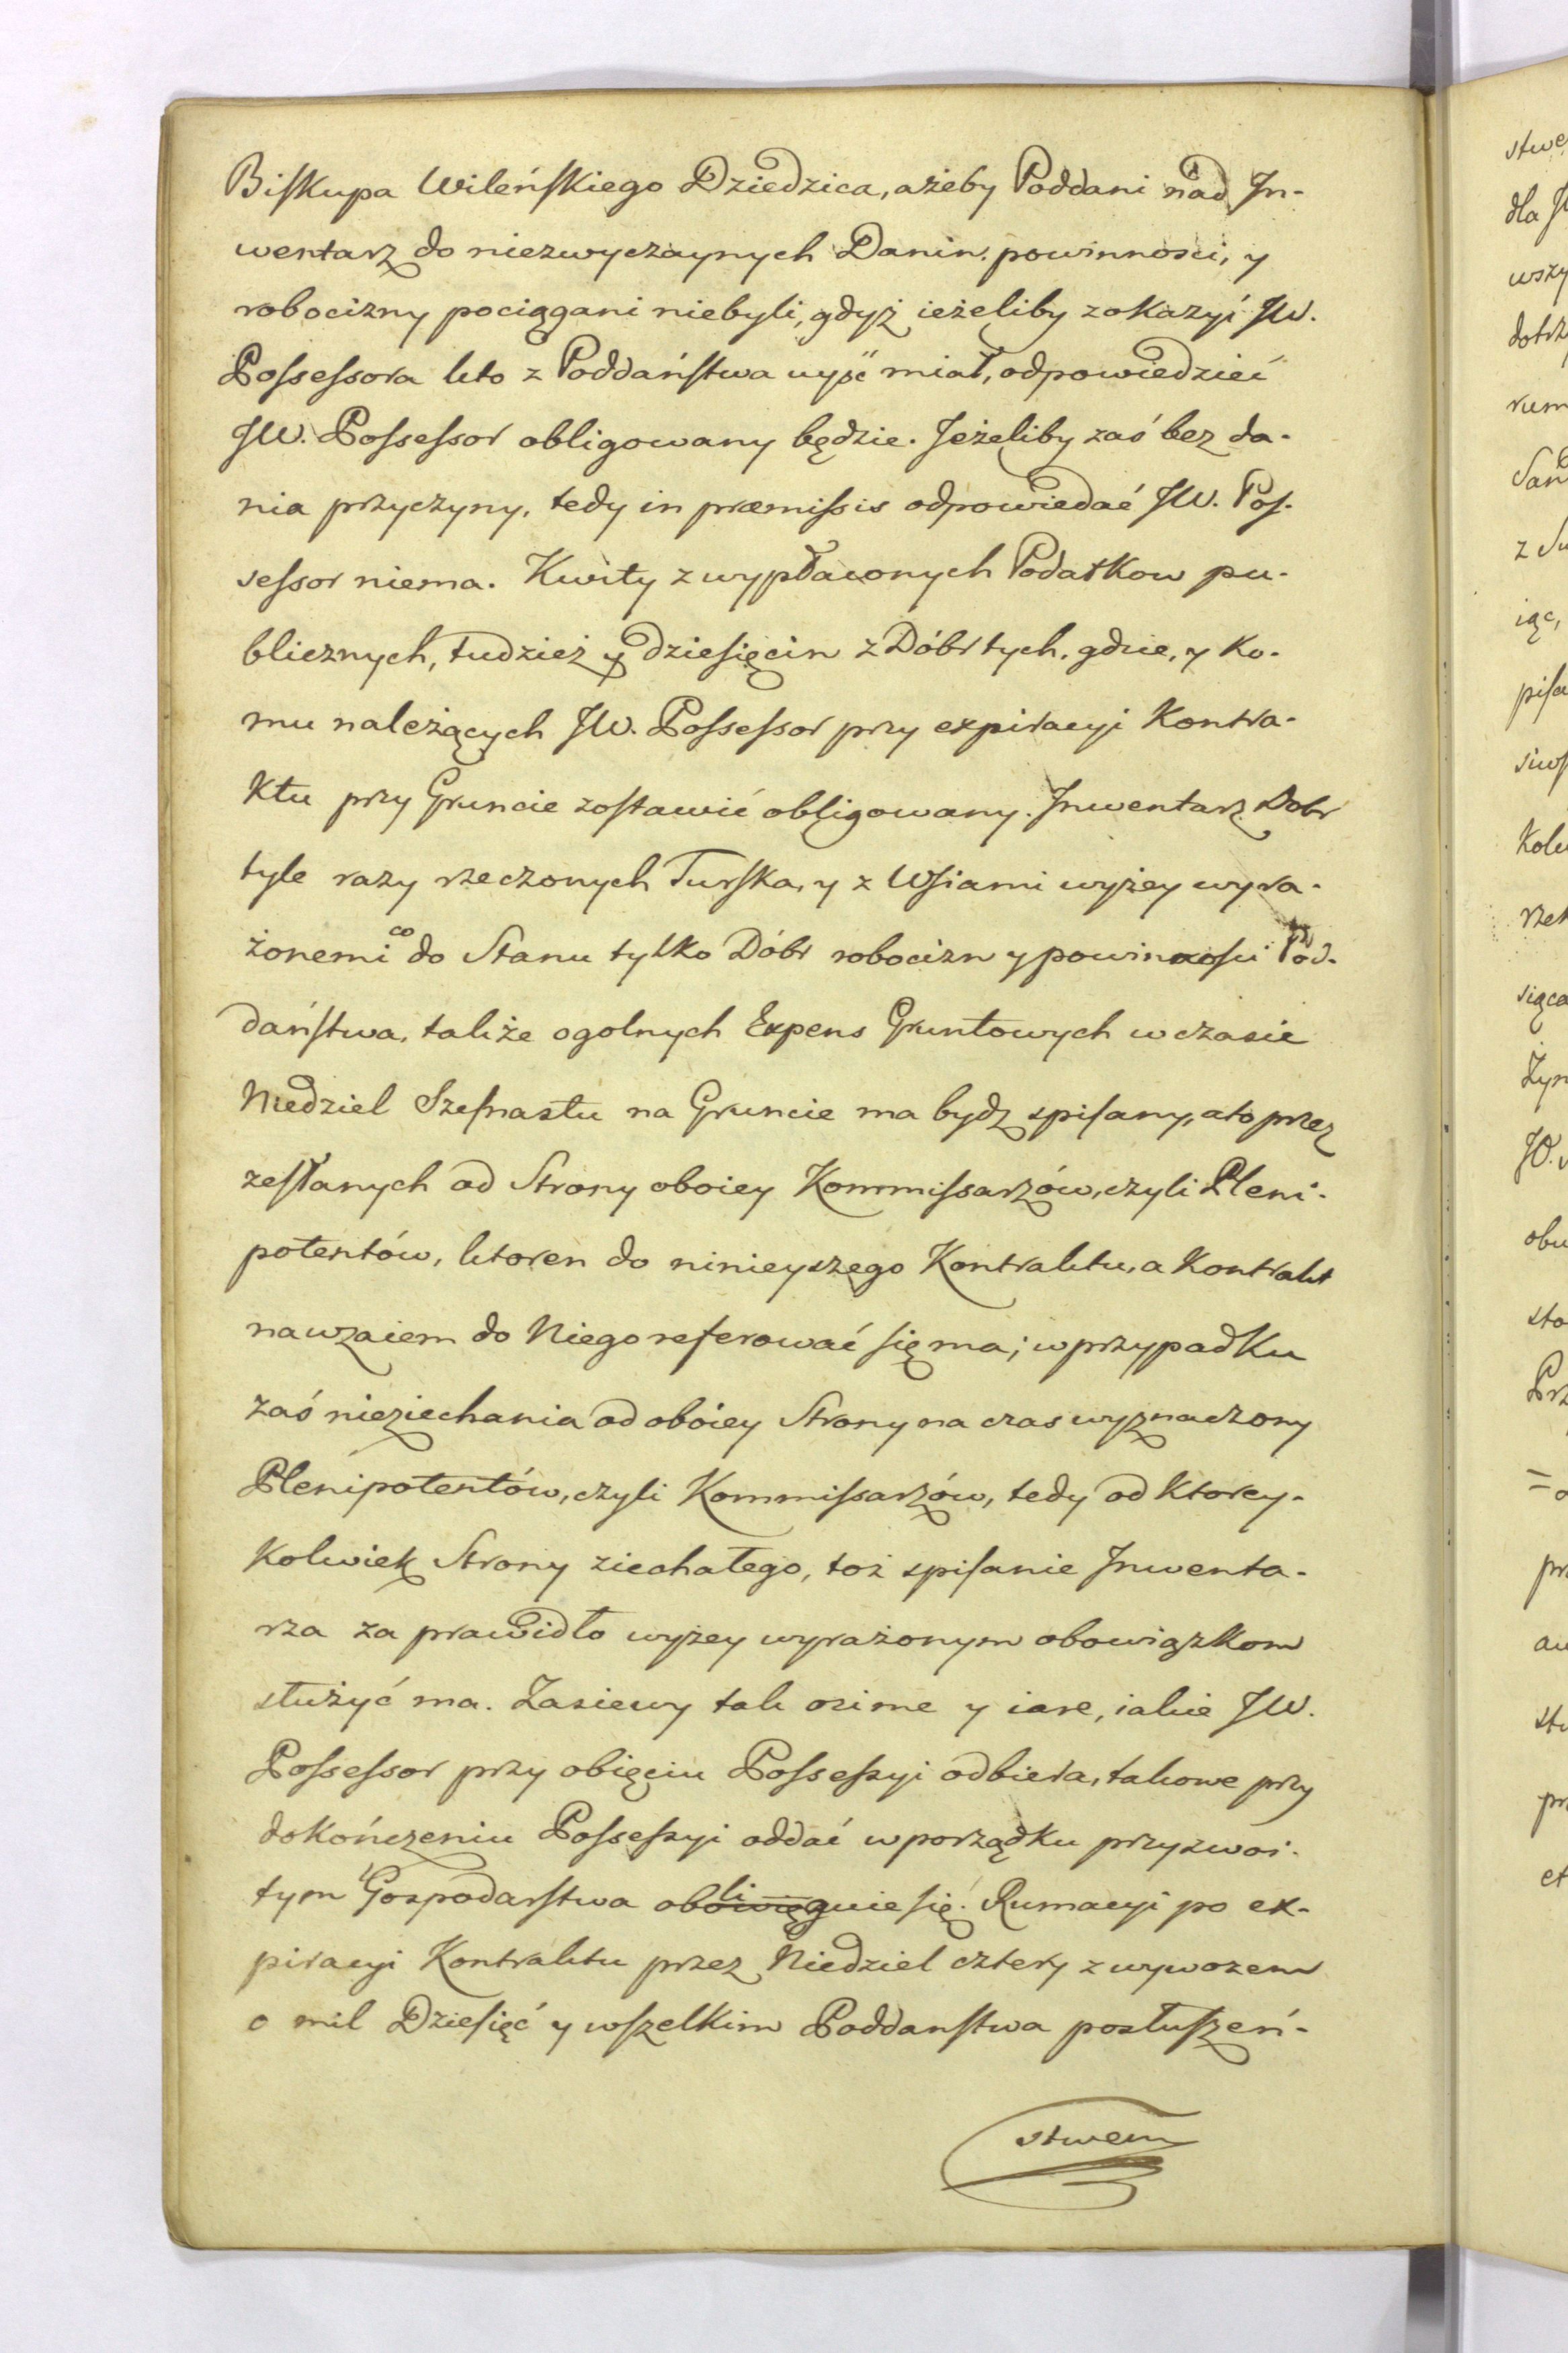 Biskupa Wileńskiego Dziedzica, ażeby Poddani nad In-
wentarz do niezwyczaynych Danin, powinności, y
robocizny pociągani niebyli, gdyż ieżeliby z okazyi JW.
Possessora kto z Poddaństwa uyść miał, odpowiedzieć
JW. Possessor obligowany będzie. Jeżeliby zaś bez da-
nia przyczyny, tedy in præmissis odpowiedać JW. Pos-
sessor niema. Kwity z wypłaconych Podatkow pu-
blicznych, tudzież y dziesięcin z Dóbr tych, gdzie, y ko-
mu należących JW. Possessor przy expiracyi Kontra-
ktu przy Gruncie zostawić obligowany. Inwentarz Dobr
tyle razy rzeczonych Turska, y z Wsiami wyżey wyra-
żonemi co do Stanu tylko Dóbr robocizn y powinności Pod-
daństwa, także ogolnych Expens Gruntowych w czasie
Niedziel Szesnastu na Gruncie ma bydz spisany, a to przez
zesłanych od Strony oboiey Kommissarzów, czyli Pleni-
potentów, ktoren do ninieyszego Kontraktu, a Kontrakt
nawzaiem do Niego referować się ma; w przypadku
zaś nieziechania od oboiey Strony na czas wyznaczony
Plenipotentów, czyli Kommissarzów, tedy od ktorey-
kolwiek Strony ziechałego, toż spisanie Inwenta-
rza za prawidło wyżey wyrażonym obowiązkom
służyć ma. Zasiewy tak ozime y iare, iakie JW.
Possessor przy obięciu Possessyi odbiera, takowe przy
dokończeniu Possessyi oddać w porządku przyzwoi-
tym Gospodarstwa obliguie się. Rumacyi po ex-
piracyi Kontraktu przez Niedziel cztery z wywozem
o mil Dziesięć y wszelkim Poddanstwa posłuszeń-
stwem
stwe
dla J
wszy
dotrz
rum
San
z Su
iąc,
pisa
siws
Kolw
rzek
siąca
Żyn
JO.
obu
sto
Prz
pr
au
st
pr
et